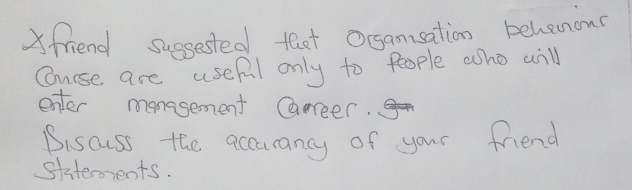 A friend suggested that Organisation behaviour
Course are useful only to people who will
enter management Career.
Discuss the accurancy of your friend
Statements.